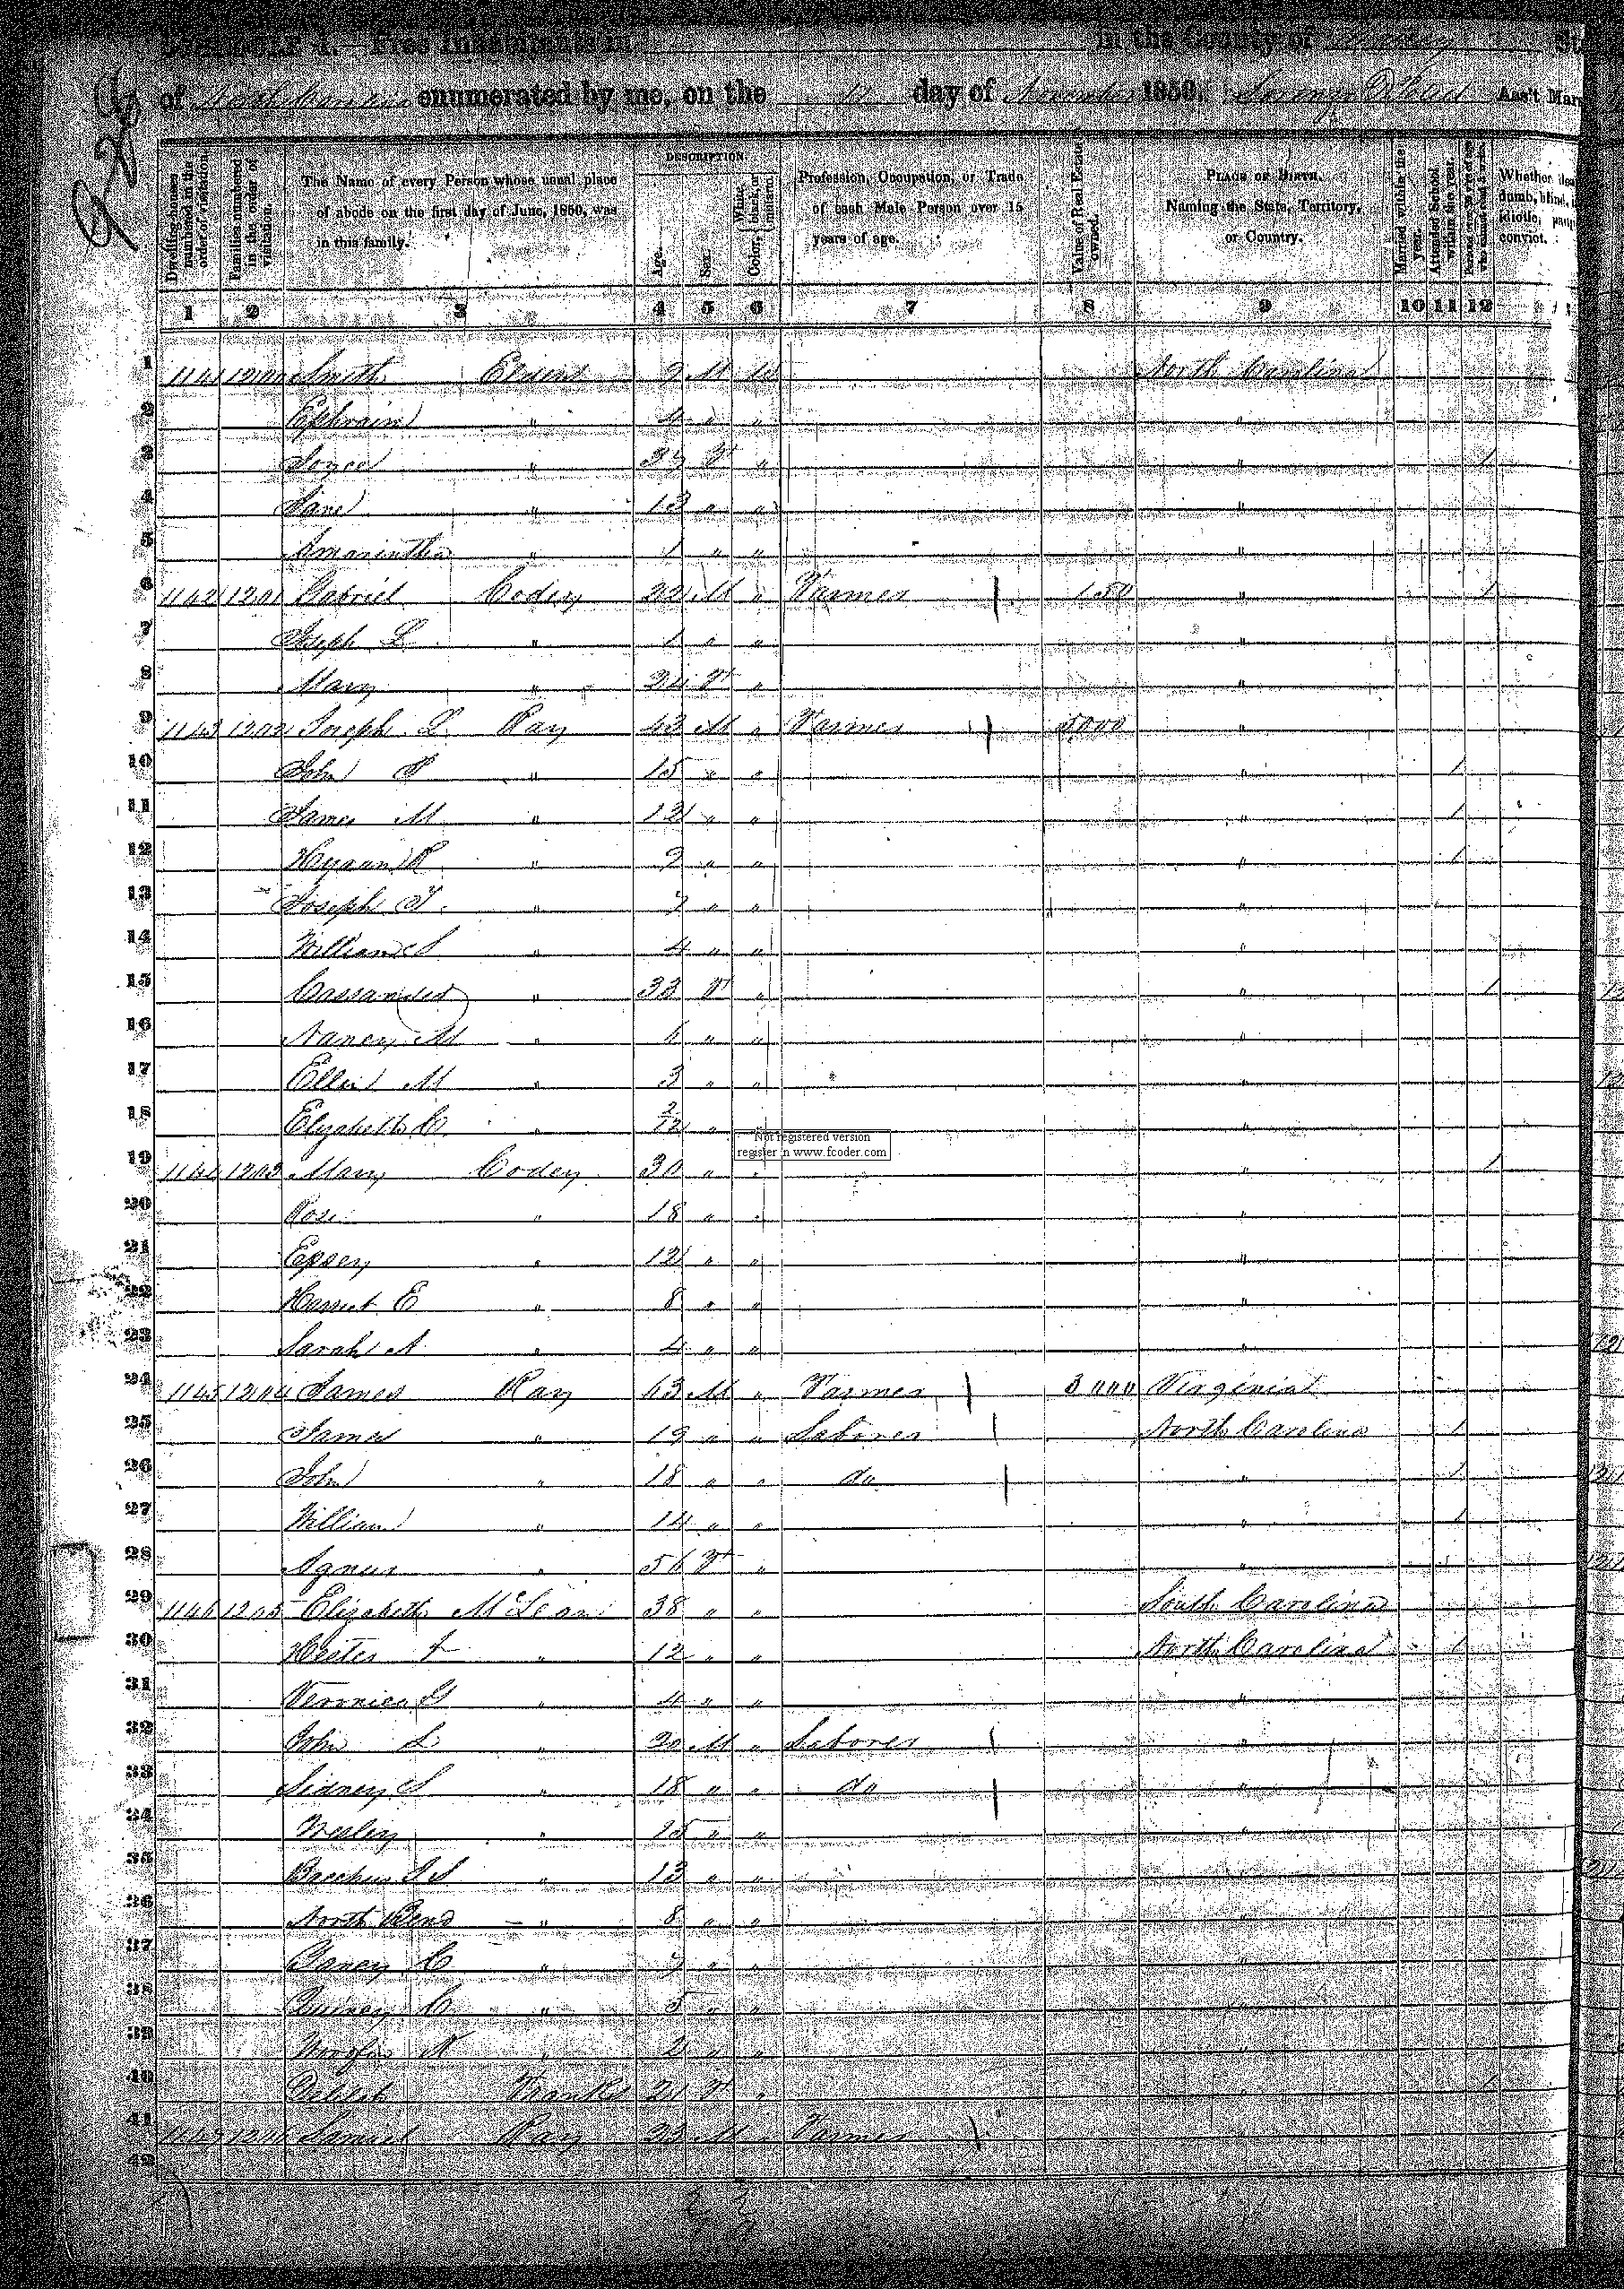 SCHEDULE I.—Free Inhabitants in in the County of Yancey St
of North Carolina enumerated by me, on the 11 day of November 1850. Ass't Mars
Dwelling-houses numbered in the order of visitation.
Families numbered in the order of visitation.
The Name of every Person whose usual place of abode on the first day of June, 1850, was in this family.
DESCRIPTION.
Age.
Sex.
Color, White, black, or mulatto.
Profession, Occupation, or Trade of each Male Person over 15 years of age.
Value of Real Estate owned.
PLACE OF BIRTH. Naming the State, Territory, or Country.
Married within the year.
Attended School within the year.
Persons over 20 y'rs of age who cannot read & write.
Whether deaf, dumb, blind, idiotic, convict.
1 2 3 4 5 6 7 8 9 10 11 12
1 1141 1200 Smith 9 M W North Carolina
2 Ephraim " 4 " " "
3 Joyce " 37 F " " 1
4 Jane " 13 " " "
5 Amarintha " 1 " " "
6 1142 1201 Gabriel Codey 22 M " Farmer 150 " 1
7 Joseph L " 1 " " "
8 Mary " 24 F " "
9 1143 1202 Joseph L Ray 43 M " Farmer 5000 "
10 John P " 15 " " " 1
11 James M " 12 " " " 1
12 Hyram R " 9 " " " 1
13 Joseph T. " 7 " " "
14 William S " 4 " " "
15 Cassander " 33 F " " 1
16 Nancy M " 6 " " "
17 Ellin M " 3 " " "
18 Elizabeth C " 2/12 " " "
Not registered version
register in www.fcoder.com
19 1144 1203 Mary Codey 30 " " " 1
20 Rose " 18 " " "
21 Epsey " 12 " " "
22 Harriet E " 8 " " "
23 Sarah A " 4 " " "
24 1145 1204 James Ray 63 M " Farmer 3000 Virginia
25 James " 19 " " Laborer North Carolina 1
26 John " 18 " " do " 1
27 William " 14 " " " 1
28 Agnes " 56 F " "
29 1146 1205 Elizabeth McLean 38 " " South Carolina
30 Hester " 12 " " North Carolina 1
31 Vernica G " 4 " " "
32 John L " 20 M " Laborer "
33 Sidney S " 18 " " do "
34 Wesley " 15 " " "
35 Bacchus " 13 " " "
36 North Bend " 8 " " "
37 C " 7 " " "
38 Quincy C " 5 " " "
39 N " 2 " " "
40 Delilah Franks 21 F " " 1
41 1147 1206 Samuel Ray 33 M " Farmer
42